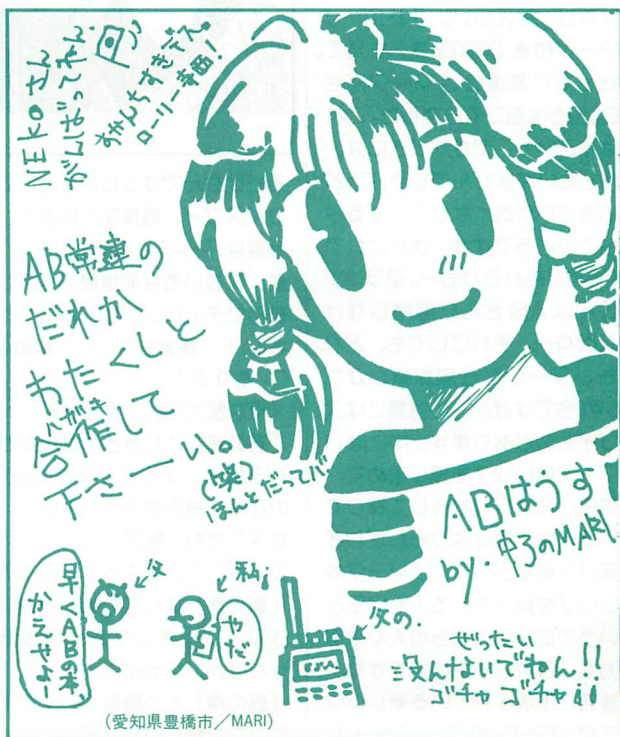 NEKoさん
がんばってねん
すかんちすきデス。
ローリー寺西!
AB常連の
だれか
わたくしと
合作して
ハガキ
下さーい。
(笑)
ほんとだってバ
ABはうす
by.中3のMARI
早くABの本、
かえせよー
父
私
やだ。
父の.
ぜったい
没んないでねん!!
ゴチャゴチャii
(愛知県豊橋市/MARI)